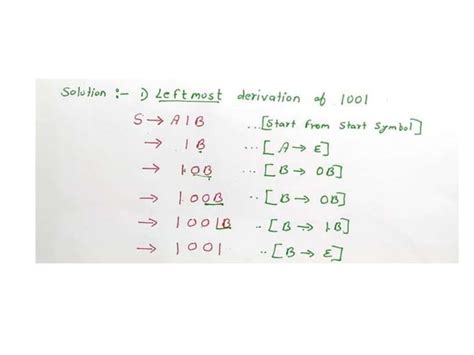 Solution :- 1) Leftmost derivation of 1001
S → A1B ...[Start from Start Symbol]
→ 1B ...[A → ε]
→ 10B ...[B → 0B]
→ 100B ..[B → 0B]
→ 1001B ..[B → 1B]
→ 1001 ..[B → ε]